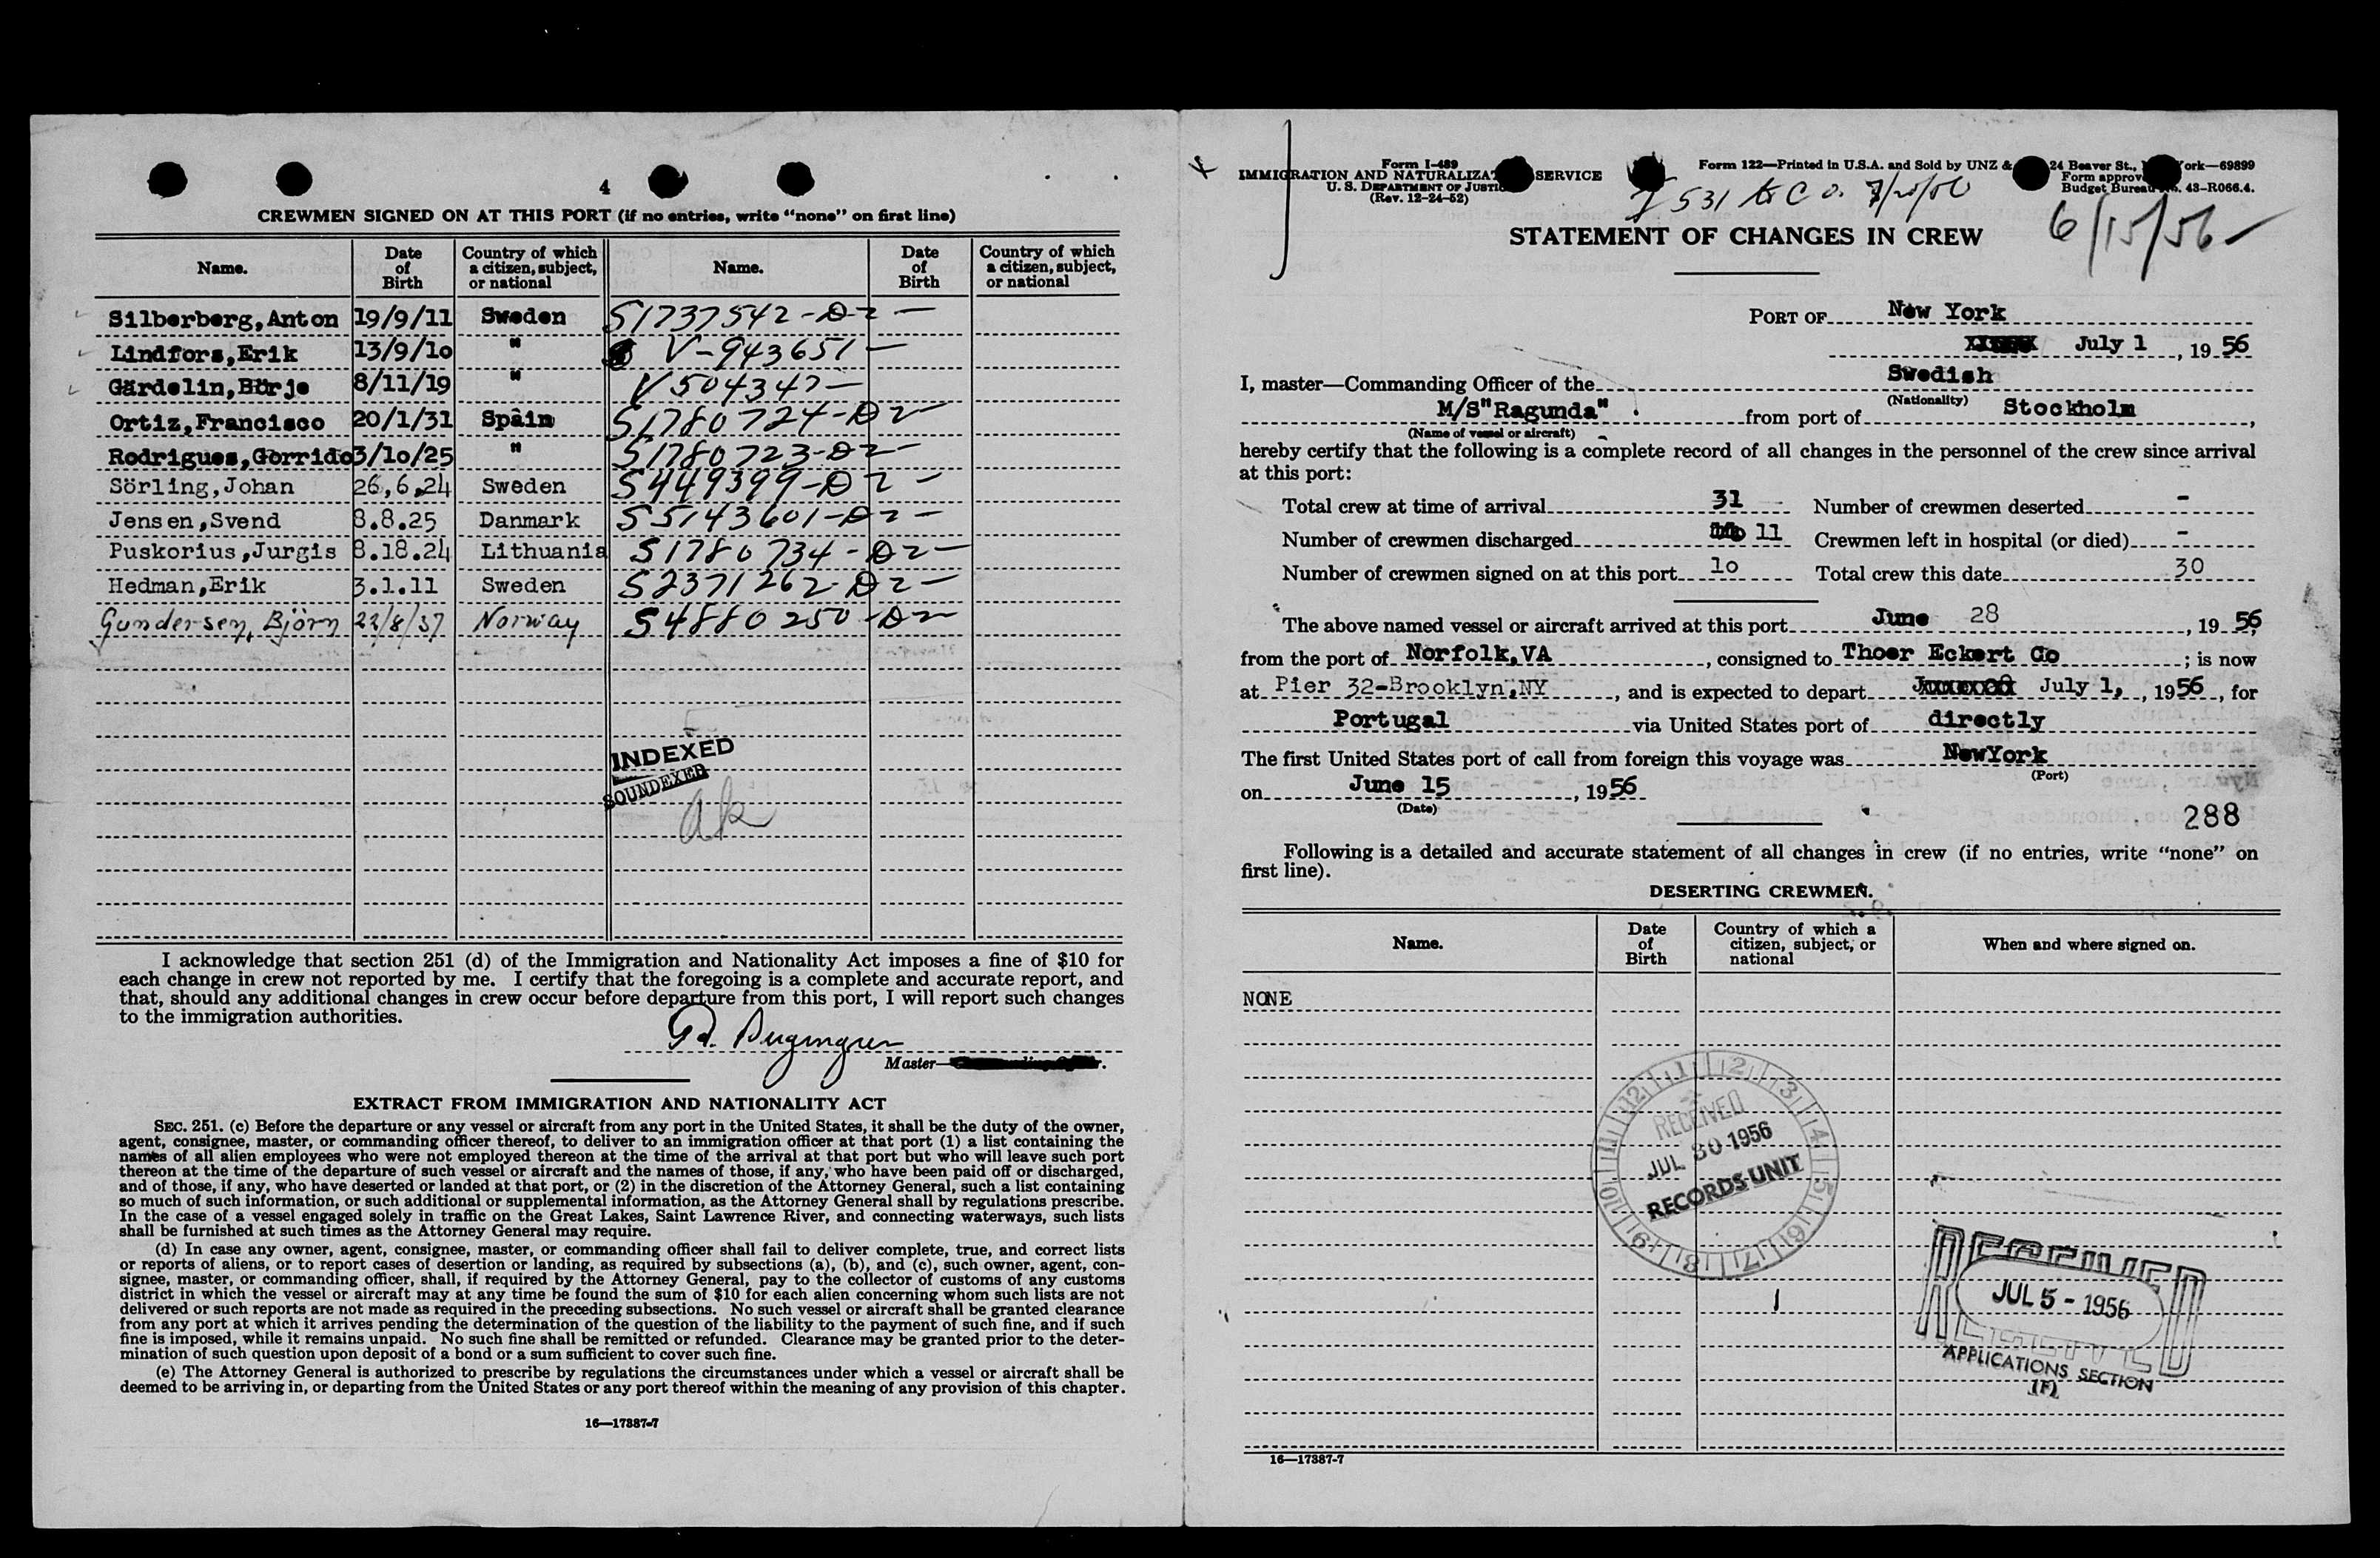 4
CREWMEN SIGNED ON AT THIS PORT (if no entries, write "none" on first line)
Name. Date of Birth Country of which a citizen, subject, or national Name. Date of Birth Country of which a citizen, subject, or national
Silberberg,Anton 19/9/11 Sweden S1737542-D2-
Lindfors,Erik 13/9/1o " V-943651-
Gärdelin,Börje 8/11/19 " V504347-
Ortiz,Francisco 20/1/31 Spain S1780724-D2-
Rodrigues,Gorrido 3/1o/25 " S1780723-D2-
Sörling,Johan 26,6,24 Sweden S449399-D2-
Jensen,Svend 8.8.25 Danmark S5143601-D2-
Puskorius,Jurgis 8.18.24 Lithuania S1780734-D2-
Hedman,Erik 3.1.11 Sweden S2371262-D2-
Gundersen, Björn 22/8/37 Norway S4880250-D2
INDEXED
SOUNDEXED
ak
I acknowledge that section 251 (d) of the Immigration and Nationality Act imposes a fine of $10 for
each change in crew not reported by me. I certify that the foregoing is a complete and accurate report, and
that, should any additional changes in crew occur before departure from this port, I will report such changes
to the immigration authorities.
Master
EXTRACT FROM IMMIGRATION AND NATIONALITY ACT
SEC. 251. (c) Before the departure or any vessel or aircraft from any port in the United States, it shall be the duty of the owner,
agent, consignee, master, or commanding officer thereof, to deliver to an immigration officer at that port (1) a list containing the
names of all alien employees who were not employed thereon at the time of the arrival at that port but who will leave such port
thereon at the time of the departure of such vessel or aircraft and the names of those, if any, who have been paid off or discharged,
and of those, if any, who have deserted or landed at that port, or (2) in the discretion of the Attorney General, such a list containing
so much of such information, or such additional or supplemental information, as the Attorney General shall by regulations prescribe.
In the case of a vessel engaged solely in traffic on the Great Lakes, Saint Lawrence River, and connecting waterways, such lists
shall be furnished at such times as the Attorney General may require.
(d) In case any owner, agent, consignee, master, or commanding officer shall fail to deliver complete, true, and correct lists
or reports of aliens, or to report cases of desertion or landing, as required by subsections (a), (b), and (c), such owner, agent, con-
signee, master, or commanding officer, shall, if required by the Attorney General, pay to the collector of customs of any customs
district in which the vessel or aircraft may at any time be found the sum of $10 for each alien concerning whom such lists are not
delivered or such reports are not made as required in the preceding subsections. No such vessel or aircraft shall be granted clearance
from any port at which it arrives pending the determination of the question of the liability to the payment of such fine, and if such
fine is imposed, while it remains unpaid. No such fine shall be remitted or refunded. Clearance may be granted prior to the deter-
mination of such question upon deposit of a bond or a sum sufficient to cover such fine.
(e) The Attorney General is authorized to prescribe by regulations the circumstances under which a vessel or aircraft shall be
deemed to be arriving in, or departing from the United States or any port thereof within the meaning of any provision of this chapter.
16—17387-7
Form I-489
IMMIGRATION AND NATURALIZAT SERVICE
U. S. DEPARTMENT OF JUSTI
(Rev. 12-24-52)
Form 122—Printed in U.S.A. and Sold by UNZ & 24 Beaver St., ork—69899
Form approv
Budget Bureau 43-R066.4.
6/15/56
STATEMENT OF CHANGES IN CREW
PORT OF New York
July 1, 1956
I, master—Commanding Officer of the Swedish
(Nationality)
M/S"Ragunda" from port of Stockholm,
(Name of vessel or aircraft)
hereby certify that the following is a complete record of all changes in the personnel of the crew since arrival
at this port:
Total crew at time of arrival 31 Number of crewmen deserted -
Number of crewmen discharged 11 Crewmen left in hospital (or died) -
Number of crewmen signed on at this port 1o Total crew this date 30
The above named vessel or aircraft arrived at this port June 28, 1956,
from the port of Norfolk,VA, consigned to Thoer Eckert Co; is now
at Pier 32-Brooklyn,NY, and is expected to depart July 1,, 1956, for
Portugal via United States port of directly
The first United States port of call from foreign this voyage was NewYork
(Port)
on June 15, 1956
(Date)
288
Following is a detailed and accurate statement of all changes in crew (if no entries, write "none" on
first line).
DESERTING CREWMEN.
Name. Date of Birth Country of which a citizen, subject, or national When and where signed on.
NONE
RECEIVED
JUL 30 1956
RECORDS UNIT
1 2 3 4 5 6 7 8 9 10 11 12
RECEIVED
JUL 5 - 1956
APPLICATIONS SECTION
(F)
16—17387-7